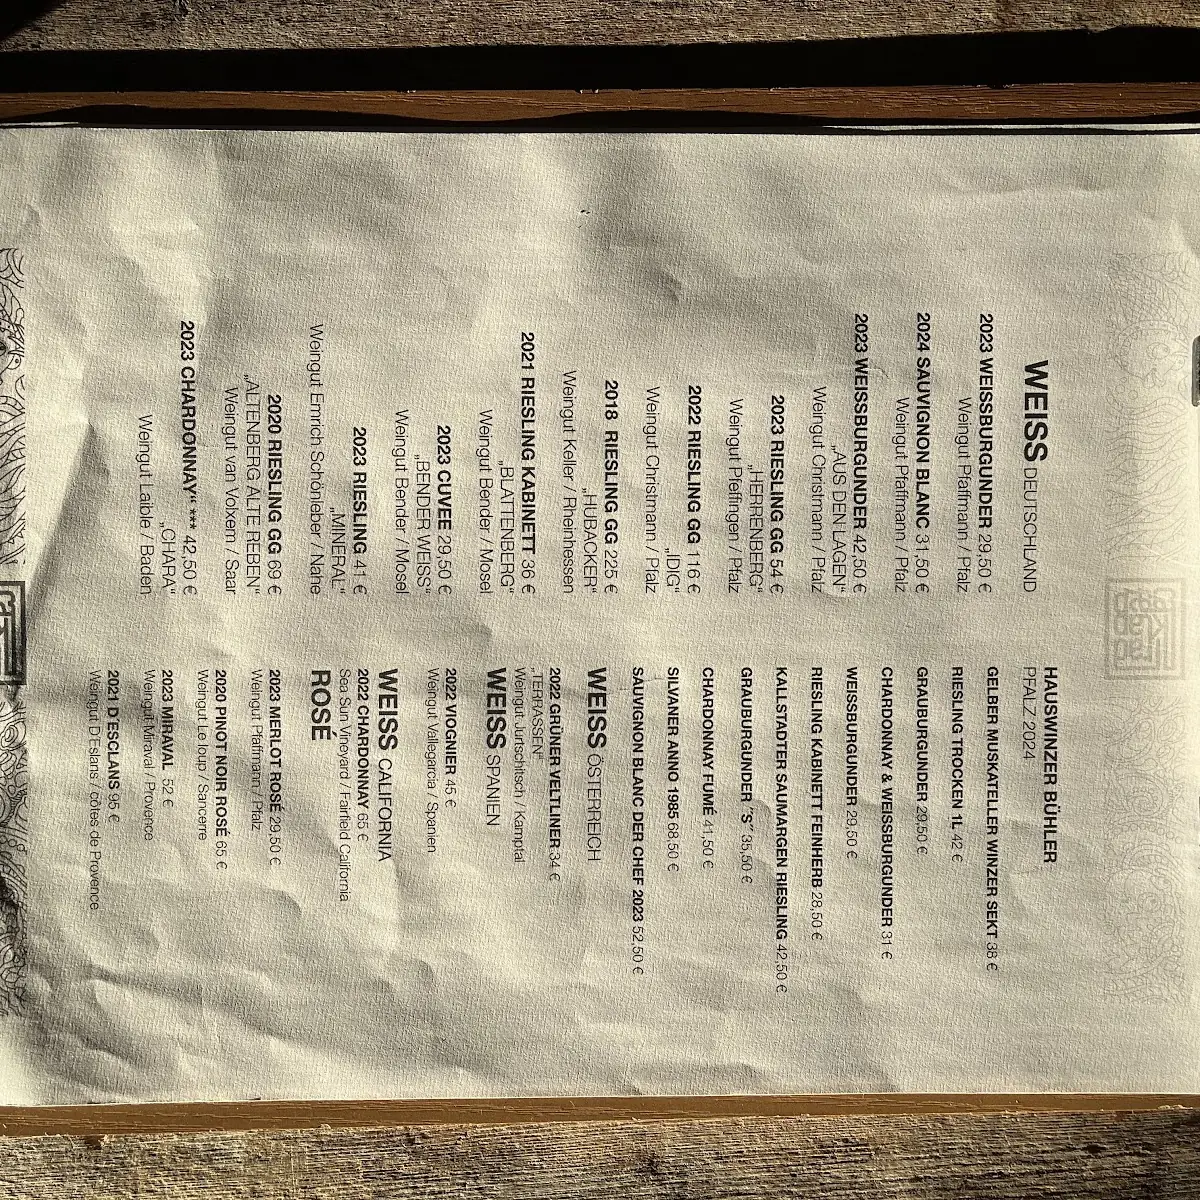 WEISS DEUTSCHLAND
2023 WEISSBURGUNDER 29,50 €
Weingut Pfaffmann / Pfalz
2024 SAUVIGNON BLANC 31,50 €
Weingut Pfaffmann / Pfalz
2023 WEISSBURGUNDER 42,50 €
„AUS DEN LAGEN“
Weingut Christmann / Pfalz
2023 RIESLING GG 54 €
„HERRENBERG“
Weingut Pfeffingen / Pfalz
2022 RIESLING GG 116 €
„IDIG“
Weingut Christmann / Pfalz
2018 RIESLING GG 225 €
„HUBACKER“
Weingut Keller / Rheinhessen
2021 RIESLING KABINETT 36 €
„BLATTENBERG“
Weingut Bender / Mosel
2023 CUVEE 29,50 €
„BENDER WEISS“
Weingut Bender / Mosel
2023 RIESLING 41 €
„MINERAL“
Weingut Emrich Schönleber / Nahe
2020 RIESLING GG 69 €
„ALTENBERG ALTE REBEN“
Weingut van Volxem / Saar
2023 CHARDONNAY“ *** 42,50 €
„CHARA“
Weingut Laible / Baden
HAUSWINZER BÜHLER
PFALZ 2024
GELBER MUSKATELLER WINZER SEKT 38 €
RIESLING TROCKEN 1L 42 €
GRAUBURGUNDER 29,50 €
CHARDONNAY & WEISSBURGUNDER 31 €
WEISSBURGUNDER 29,50 €
RIESLING KABINETT FEINHERB 28,50 €
KALLSTADTER SAUMARGEN RIESLING 42,50 €
GRAUBURGUNDER ˝S˝ 35,50 €
CHARDONNAY FUMÉ 41,50 €
SILVANER ANNO 1985 68,50 €
SAUVIGNON BLANC DER CHEF 2023 52,50 €
WEISS ÖSTERREICH
2022 GRÜNER VELTLINER 34 €
„TERRASSEN“
Weingut Jurtschitsch / Kamptal
WEISS SPANIEN
2022 VIOGNIER 45 €
Weingut Vallegarcia / Spanien
WEISS CALIFORNIA
2022 CHARDONNAY 65 €
Sea Sun Vineyard / Fairfield California
ROSÉ
2023 MERLOT ROSÉ 29,50 €
Weingut Pfaffmann / Pfalz
2020 PINOT NOIR ROSÉ 65 €
Weingut Le loup / Sancerre
2023 MIRAVAL 52 €
Weingut Miraval / Provence
2021 D'ESCLANS 95 €
Weingut D'Eslans / côtes de Provence